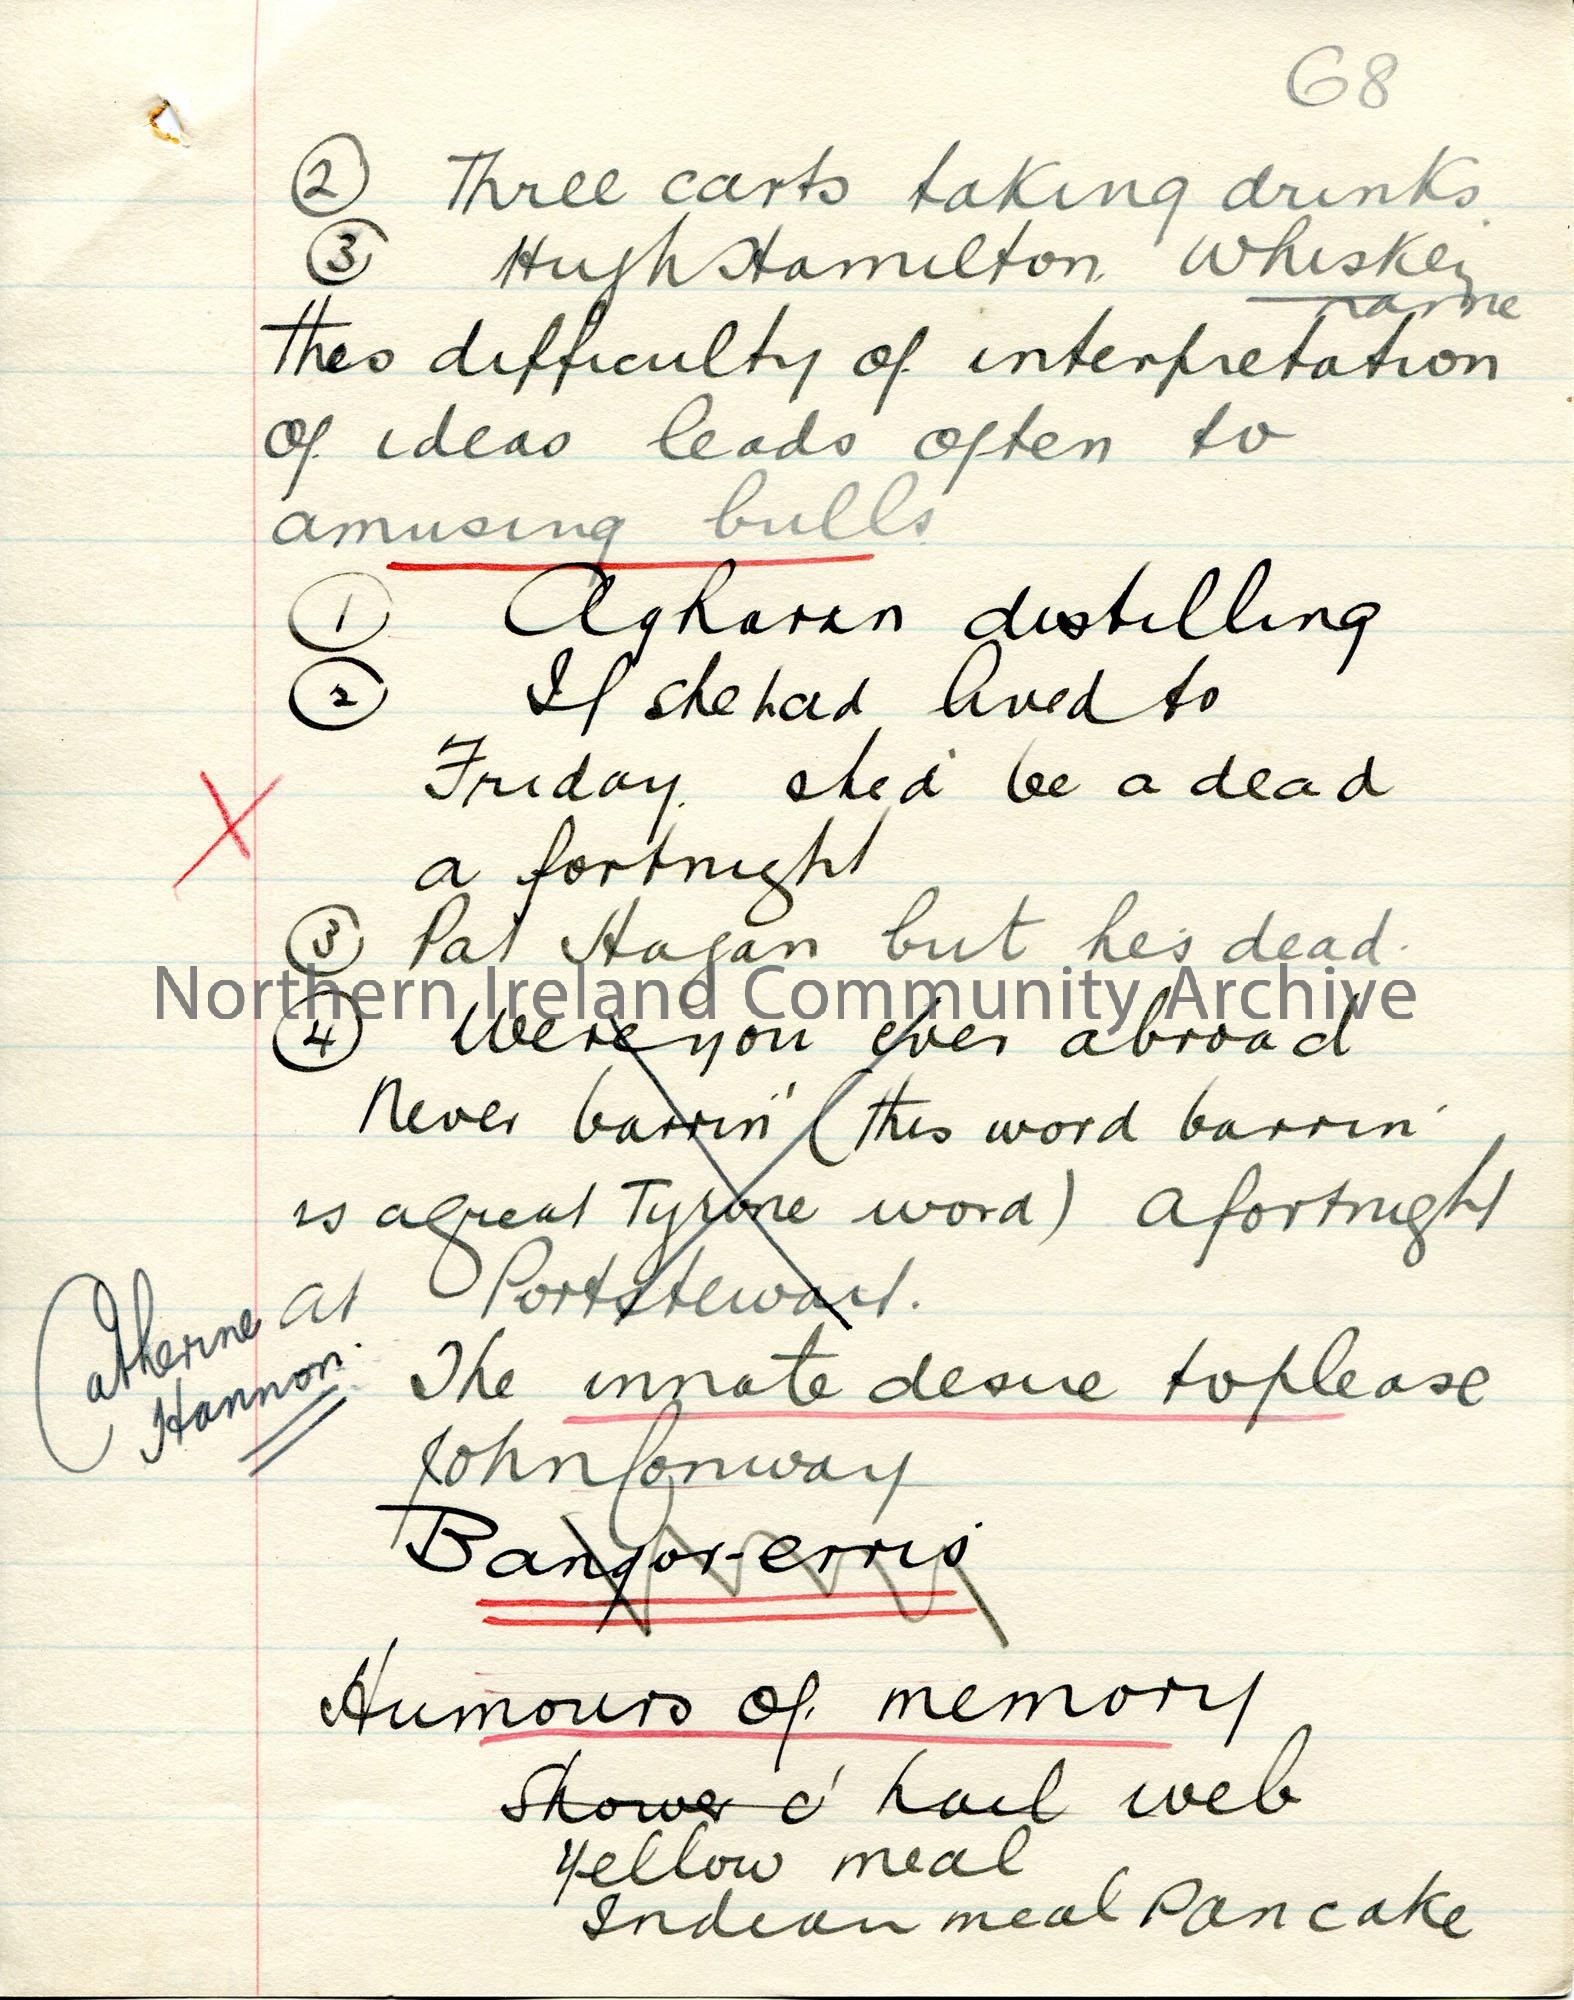 68
② Three carts taking drinks.
③ Hugh Hamilton. Whiskey
name
This difficulty of interpretation
of ideas leads often to
amusing bulls
① Agharan distilling
② If she had lived to
Friday. she'd be a dead
a fortnight
③ Pat Hagan but he's dead.
Northern Ireland Community Archive
④ Were you ever abroad
Never barrin' (this word barrin'
is a great Tyrone word) a fortnight
at Portstewart.
Catherine
Hannon.
The innate desire to please
John Conway
Bangor-erris
Humours of memory
Shower o' hail web
Yellow meal
Indian meal Pancake